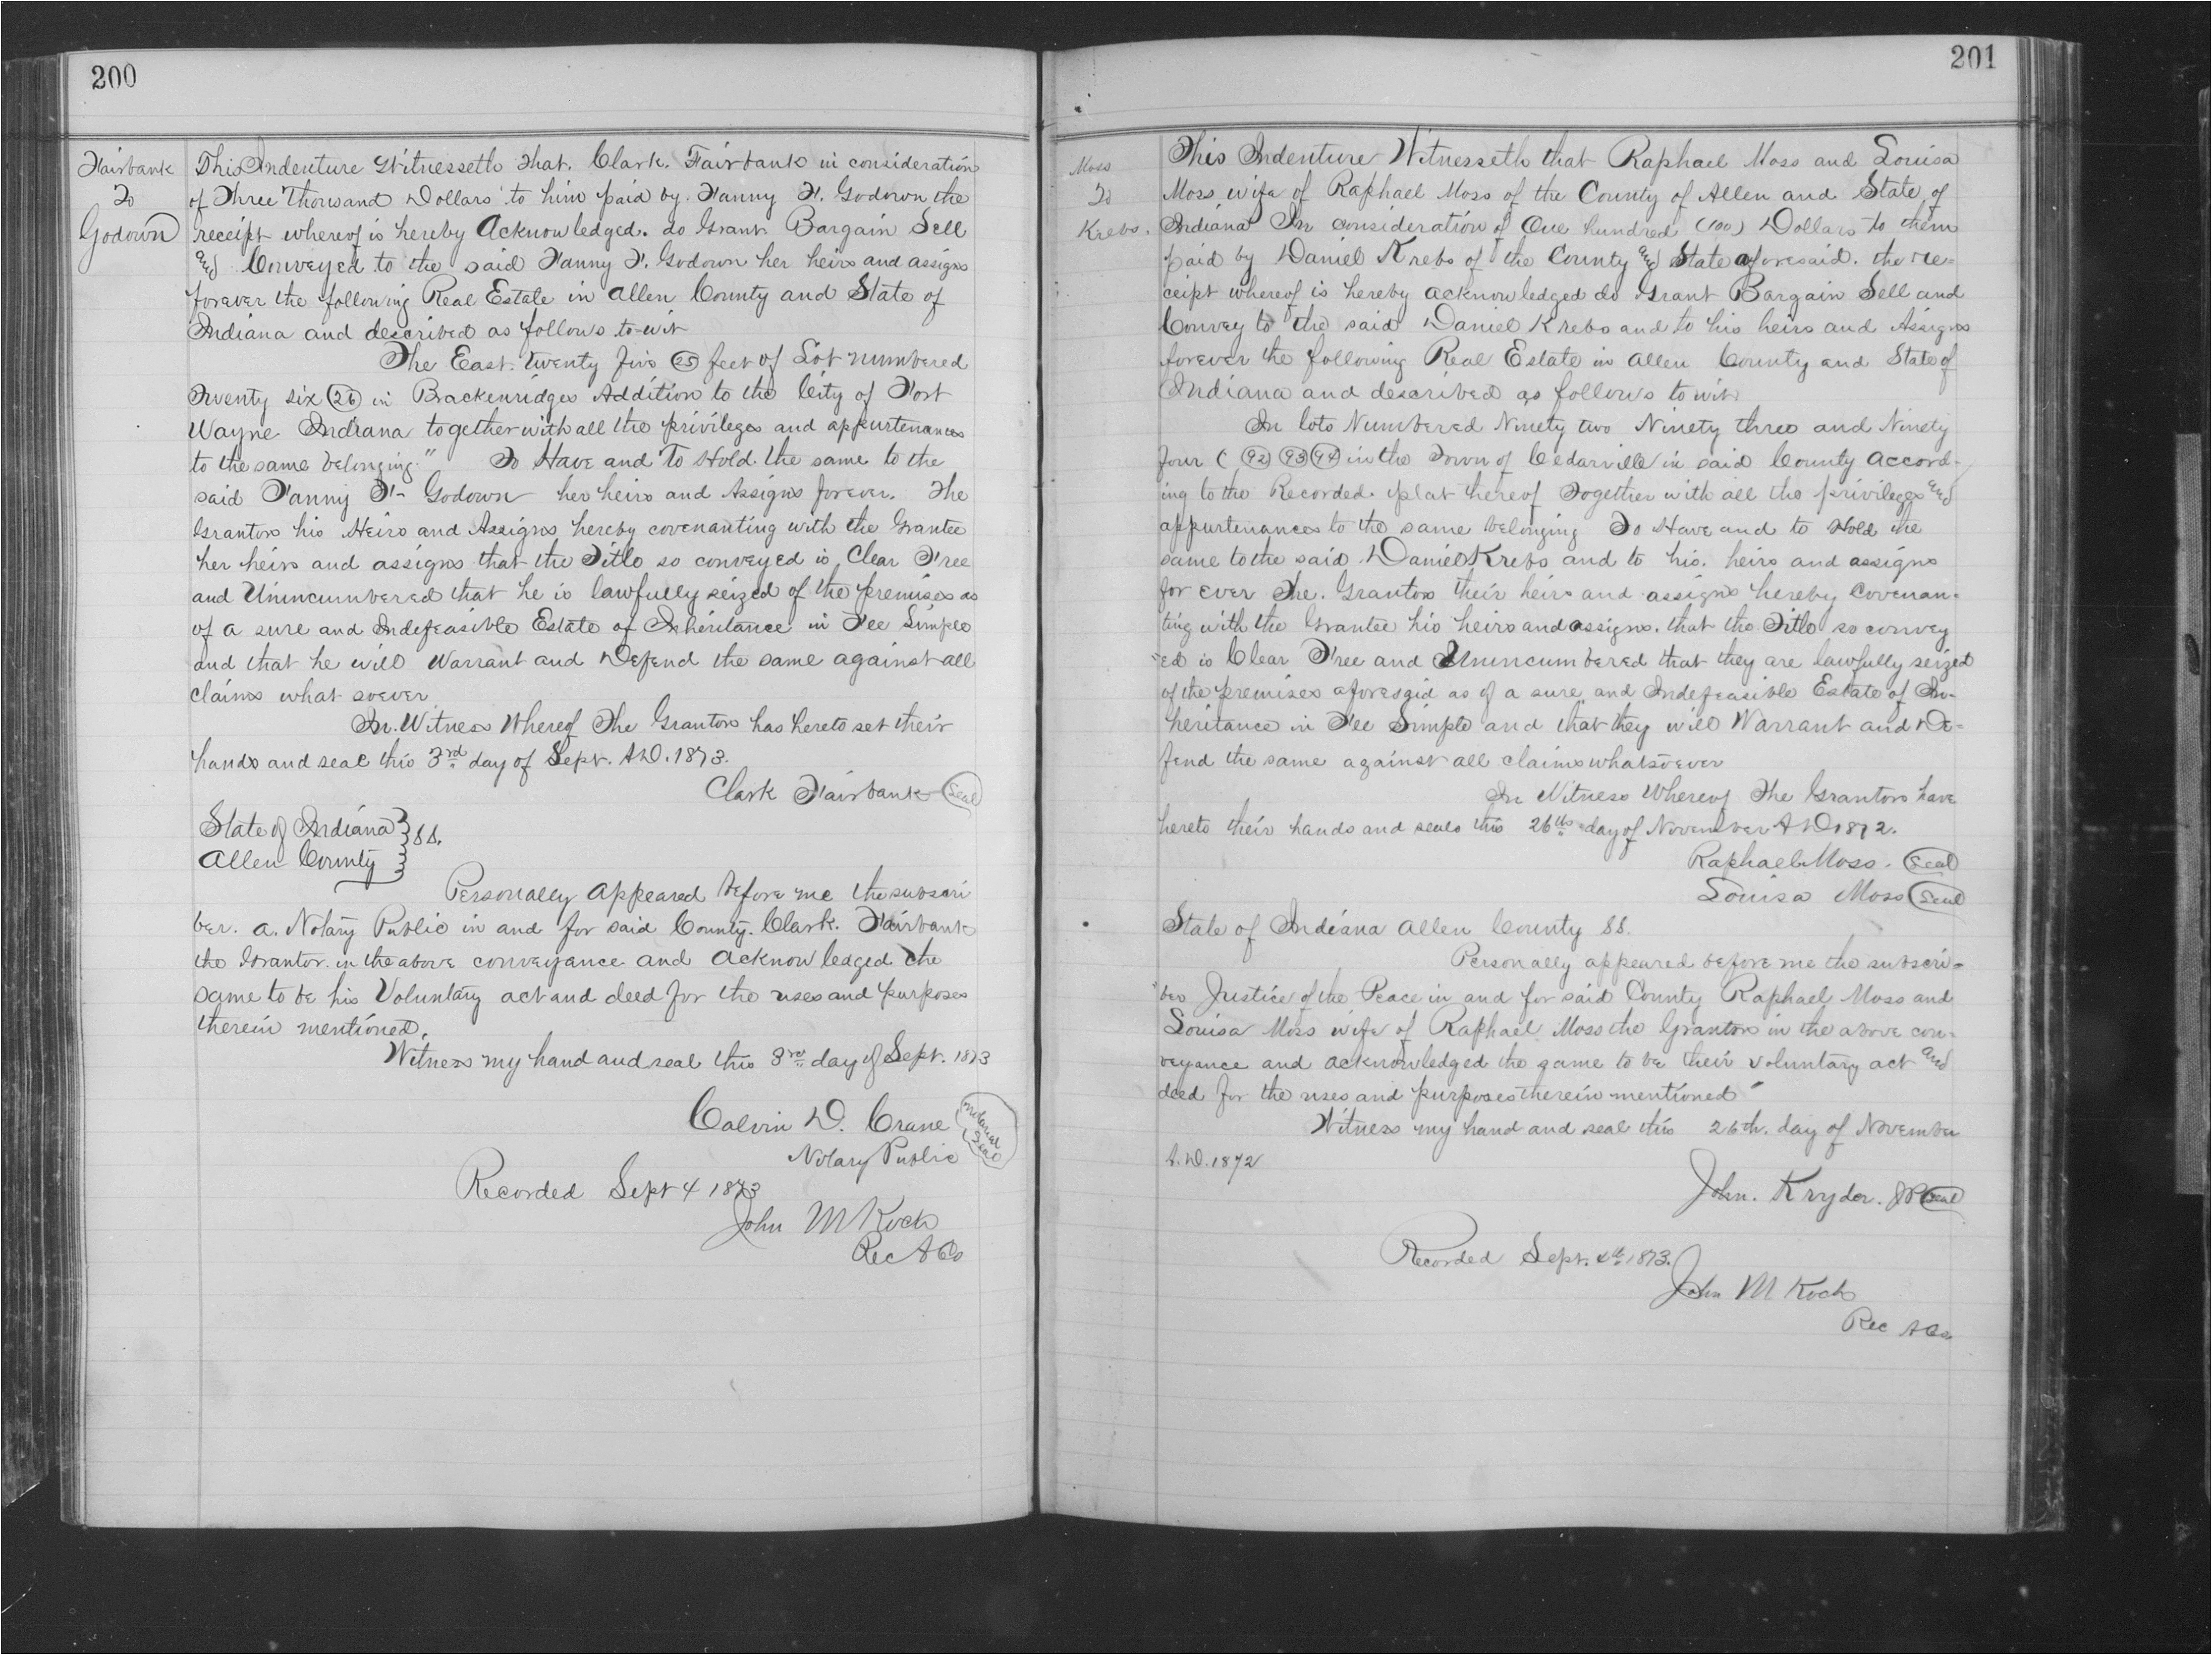 200
Fairbank
To
Godown
This Indenture Witnesseth That. Clark. Fairbank in consideration
of Three Thousand Dollars to him paid by. Fanny F. Godown the
receipt whereof is hereby Acknowledged. do Grant Bargain Sell
and Conveyed to the said Fanny F. Godown her heirs and assigns
forever the following Real Estate in Allen County and State of
Indiana and described as follows to-wit
The East. Twenty five (25) feet of Lot numbered
Twenty six (26) in Brackenridges Addition to the City of Fort
Wayne Indiana together with all the privileges and appurtenances
to the same belonging." To Have and To Hold. the same to the
said Fanny F- Godown her heirs and Assigns forever. The
Grantors his Heirs and Assigns hereby covenanting with the Grantee
her heirs and assigns that the Title so conveyed is Clear Free
and Unincumbered that he is lawfully seized of the premises as
of a sure and Indefeasible Estate of Inheritance in Fee Simple
and that he will Warrant and Defend the same against all
claims what soever
In. Witness Whereof The Grantors has hereto set their
hands and seal this 3rd day of Sept. A.D. 1873.
Clark Fairbank (Seal)
State of Indiana } SS.
Allen County }
Personally appeared before me the subscri
ber. a. Notary Public in and for said County. Clark. Fairbank
the Grantor. in the above conveyance and acknowledged the
same to be his Voluntary act and deed for the uses and purposes
therein mentioned.
Witness my hand and seal this 3rd day of Sept. 1873
Calvin D. Crane (Notarial Seal)
Notary Public
Recorded Sept 4 1873
John M Koch
Rec A Co
201
Moss
To
Krebs.
This Indenture Witnesseth that Raphael Moss and Louisa
Moss wife of Raphael Moss of the County of Allen and State of
Indiana In consideration of One hundred (100) Dollars to them
paid by Daniel Krebs of the County and State aforesaid. the re=
ceipt whereof is hereby acknowledged do Grant Bargain Sell and
Convey to the said Daniel Krebs and to his heirs and Assigns
forever the following Real Estate in Allen County and State of
Indiana and described as follows to wit
In lots Numbered Ninety two Ninety three and Ninety
four ( (92) (93) (94) in the Town of Cedarville in said County accord-
ing to the Recorded. plat thereof Together with all the privileges and
appurtenances to the same belonging To Have and to Hold the
same to the said. Daniel Krebs and to his. heirs and assigns
for ever The. Grantors their heirs and assigns hereby Covenan=
ting with the Grantee his heirs and assigns. that the Title so convey
"ed is Clear Free and Unincumbered that they are lawfully seized
of the premises aforesaid as of a sure and Indefeasible Estate of In-
heritance in Fee Simple and that they will Warrant and De=
fend the same against all claims whatsoever
In Witness Whereof The Grantors have
hereto their hands and seals this 26th day of November A D 1872.
Raphael Moss. (Seal)
Louisa Moss (Seal)
State of Indiana Allen County SS.
Personally appeared before me the subscri=
"ber Justice of the Peace in and for said County Raphael Moss and
Louisa Moss wife of Raphael Moss the Grantors in the above con=
veyance and acknowledged the same to be their voluntary act and
deed for the uses and purposes therein mentioned
Witness my hand and seal this 26th. day of November
A.D. 1872
John. Kryder. JP (Seal)
Recorded Sept. 4th 1873.
John M Koch
Rec A Co.